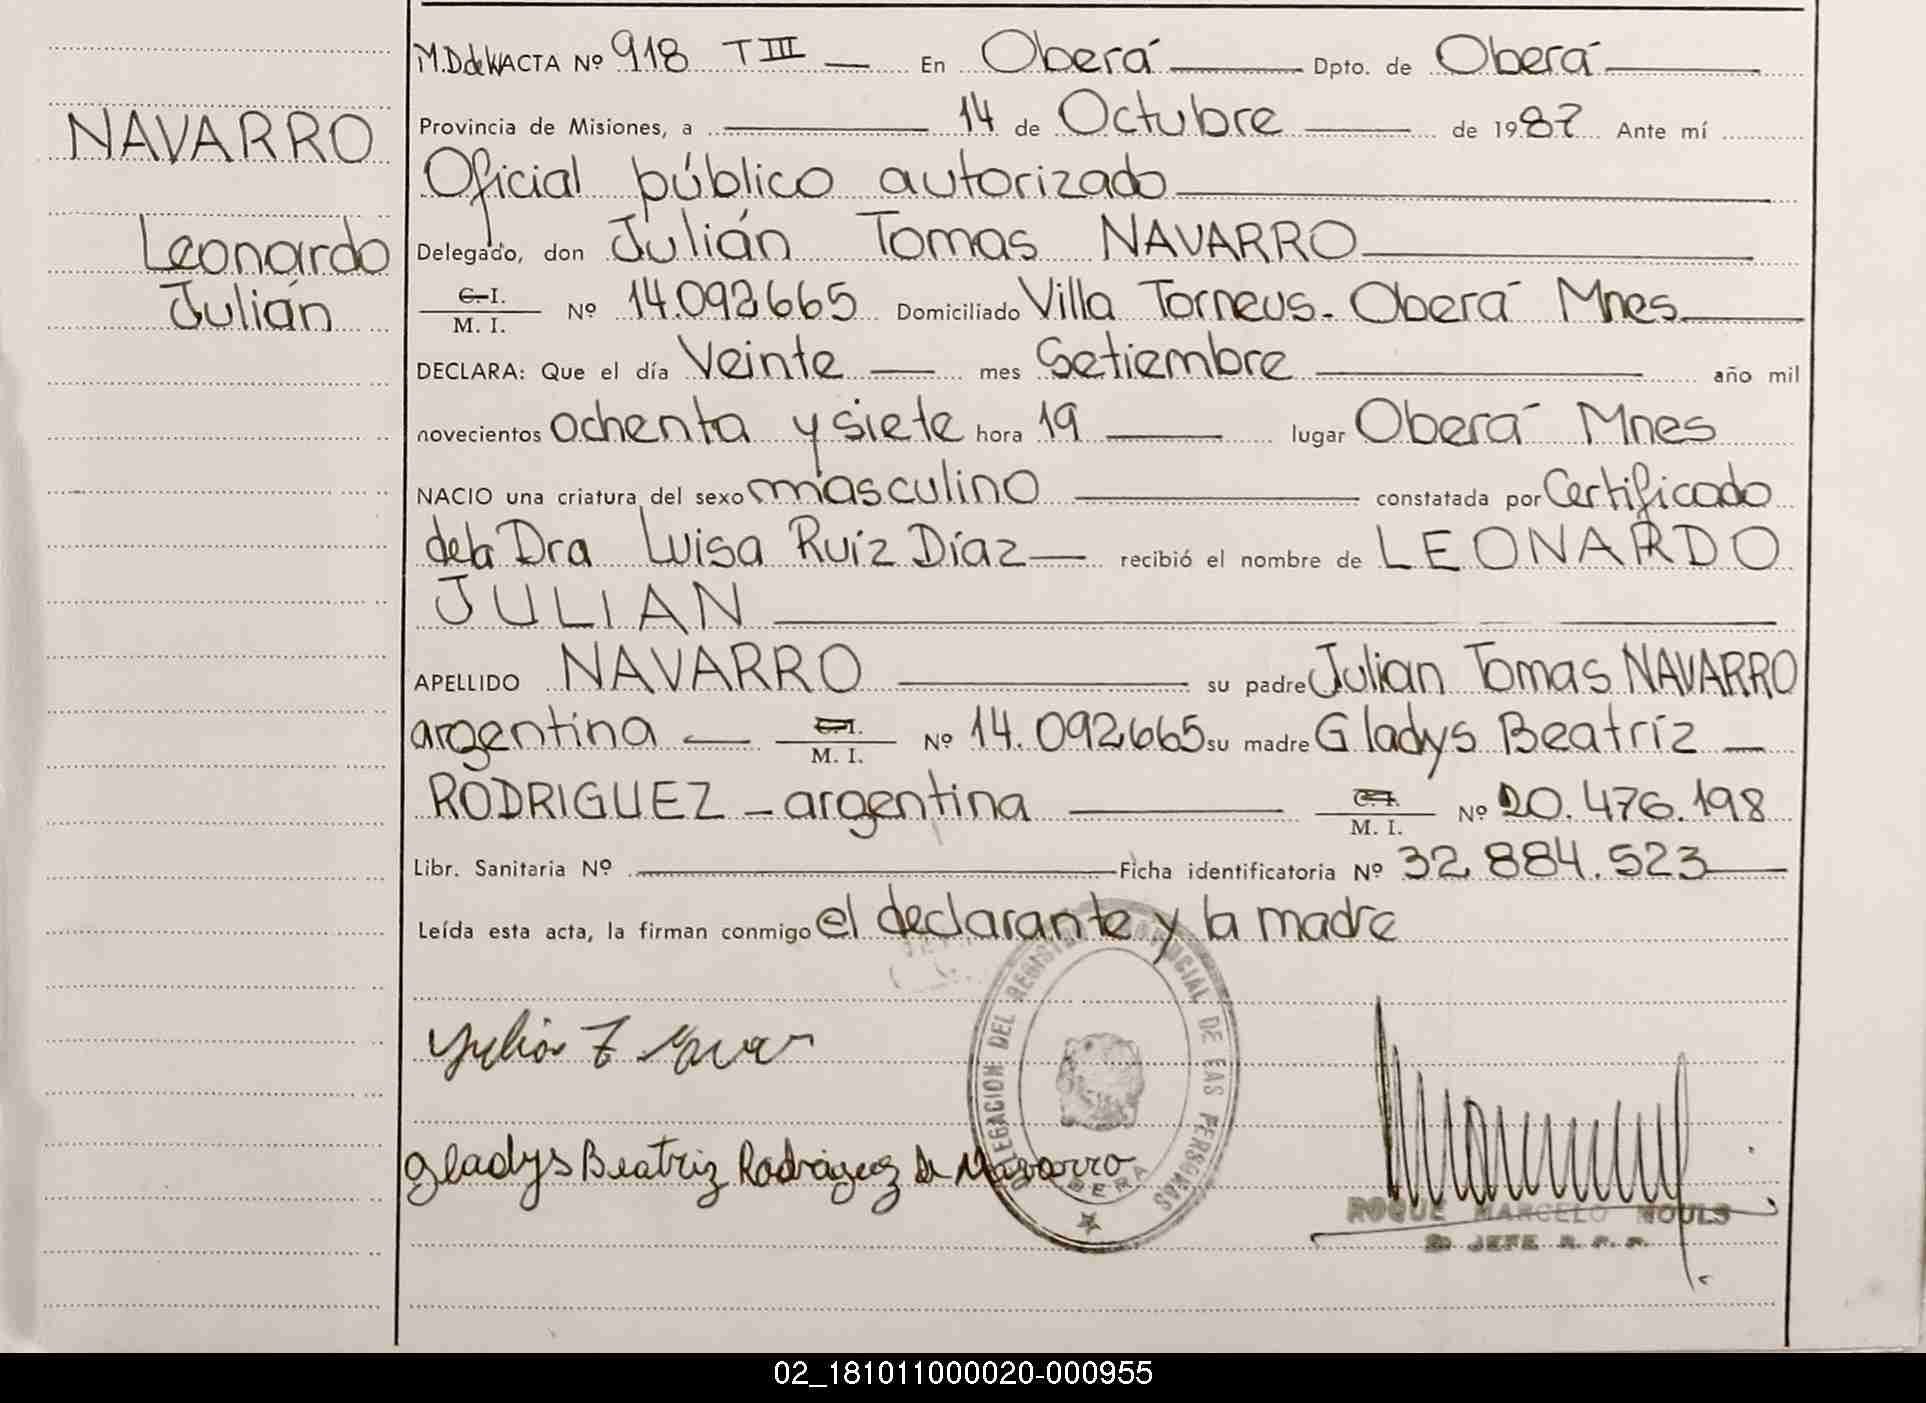 M.D de W ACTA Nº 918 TIII En Oberá Dpto. de Oberá
NAVARRO
Provincia de Misiones, a 14 de Octubre de 1987 Ante mí
Oficial público autorizado
Leonardo
Julián
Delegado, don Julián Tomas NAVARRO
C. I.
M. I. Nº 14.092665 Domiciliado Villa Torneus. Oberá Mnes.
DECLARA: Que el día Veinte mes Setiembre año mil
novecientos ochenta y siete hora 19 lugar Oberá Mnes
NACIO una criatura del sexo masculino constatada por Certificado
de la Dra Luisa Ruíz Díaz recibió el nombre de LEONARDO
JULIAN
APELLIDO NAVARRO su padre Julian Tomas NAVARRO
argentina C. I.
M. I. Nº 14.092665 su madre Gladys Beatríz
RODRIGUEZ - argentina C. I.
M. I. Nº 20.476.198
Libr. Sanitaria Nº Ficha identificatoria Nº 32.884.523
Leída esta acta, la firman conmigo el declarante y la madre
DELEGACION DEL REGISTRO PROVINCIAL DE LAS PERSONAS
OBERA
Julián T
Gladys Beatriz Rodriguez de Navarro
ROQUE MARCELO MOULS
JEFE R. P. P.
02_181011000020-000955